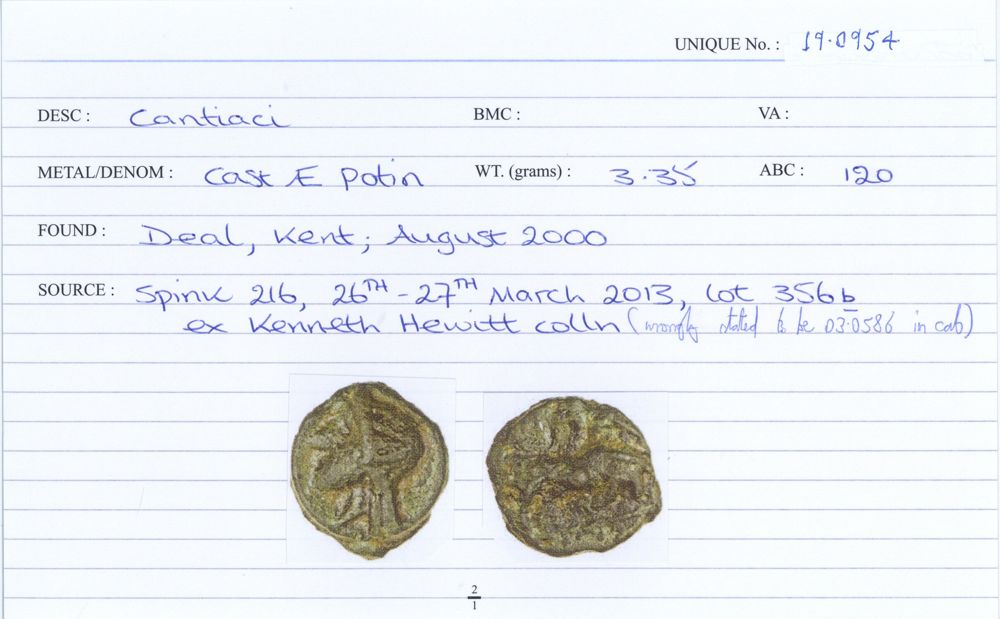 UNIQUE No. : 19.0954
DESC : Cantiaci BMC : VA :
METAL/DENOM : Cast Æ Potin WT. (grams) : 3.35 ABC : 120
FOUND : Deal, Kent; August 2000
SOURCE : Spink 216, 26TH - 27TH March 2013, lot 356b
ex Kenneth Hewitt colln (wrongly stated to be 03.0586 in cat)
2
1